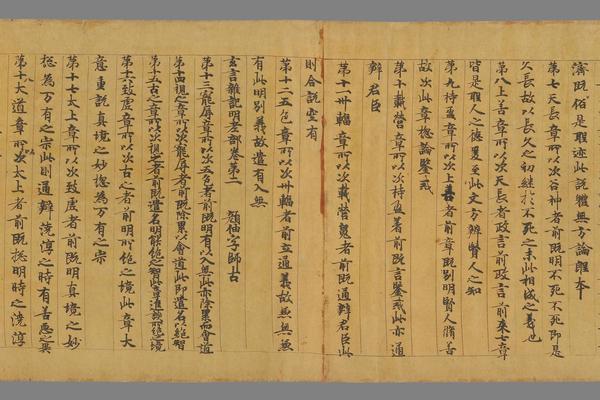 濟既俗是聖迹此說雖無方論聖本
第七天長章所以次谷神者前既明不死不死即是
久長故以長久之初繼於不死之末此相成之義也
第八上善章所以次天長者政言前政言前來七章
皆是聖人之德爰至此文方辨賢人之知
第九持盈章所以次上善者前章既別明賢人脩善
故次此章惣論鑒戒
第十載營章所以次持盈者前既言鑒戒此亦通
辨君臣
第十一卅輻章所以次載營魄者前既通辨君臣此
則合說空有
第十二五色章所以次卅輻者前立通義故無無無
有此明別義故遣有入無
玄言新記明老部卷第二 顏仙字師古
第十三寵辱章所以次五色者前既明有以入無此亦除累而會道
第十四視之章所以次寵辱者前既除累以會道此即遣名以絕智
第十五古之章所以次視之者前既遣名明能絕之智此章進談所絕之境
第十六致虛章所以次古之者前明所絕之境此章大
意重說真境之妙惣為万有之宗
第十七太上章所以次致虛者前既明真境之妙
惣為万有之宗此則通辨澆淳之時有善惡之異
第十八大道章所以次太上者前既惣明時之澆淳